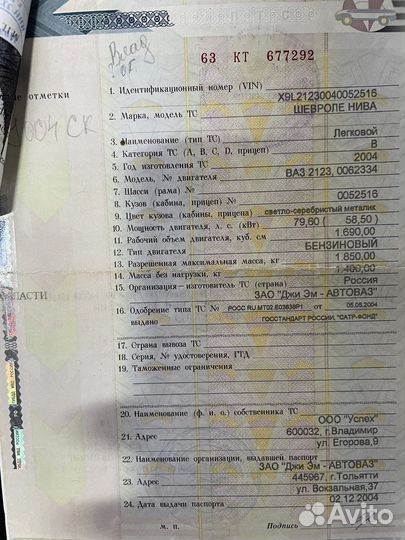 Влад
ОГ
63 КТ 677292
ные отметки
1. Идентификационный номер (VIN) X9L21230040052516
2. Марка, модель ТС ШЕВРОЛЕ НИВА
3. Наименование (тип ТС) Легковой
4. Категория ТС (A, B, C, D, прицеп) В
5. Год изготовления ТС 2004
6. Модель, № двигателя ВАЗ 2123, 0062334
7. Шасси (рама) №
8. Кузов (кабина, прицеп) № 0052516
9. Цвет кузова (кабины, прицепа) светло-серебристый металик
10. Мощность двигателя, л. с. (кВт) 79,60 ( 58,50 )
11. Рабочий объем двигателя, куб. см 1.690,00
12. Тип двигателя БЕНЗИНОВЫЙ
13. Разрешенная максимальная масса, кг 1.850,00
14. Масса без нагрузки, кг 1.400,00
15. Организация – изготовитель ТС (страна) Россия
ЗАО "Джи Эм - АВТОВАЗ"
ОБЛАСТИ
16. Одобрение типа ТС № РОСС RU.MT02.E03638P1 от 05.05.2004
выдано ГОССТАНДАРТ РОССИИ, "САТР-ФОНД"
17. Страна вывоза ТС
18. Серия, № удостоверения, ГТД
19. Таможенные ограничения
20. Наименование (ф. и. о.) собственника ТС
ООО "Успех"
21. Адрес 600032, г.Владимир
ул. Егорова,9
22. Наименование организации, выдавшей паспорт
ЗАО "Джи Эм - АВТОВАЗ"
23. Адрес 445967, г.Тольятти
ул. Вокзальная,37
24. Дата выдачи паспорта 02.12.2004
М. П. Подпись
Avito